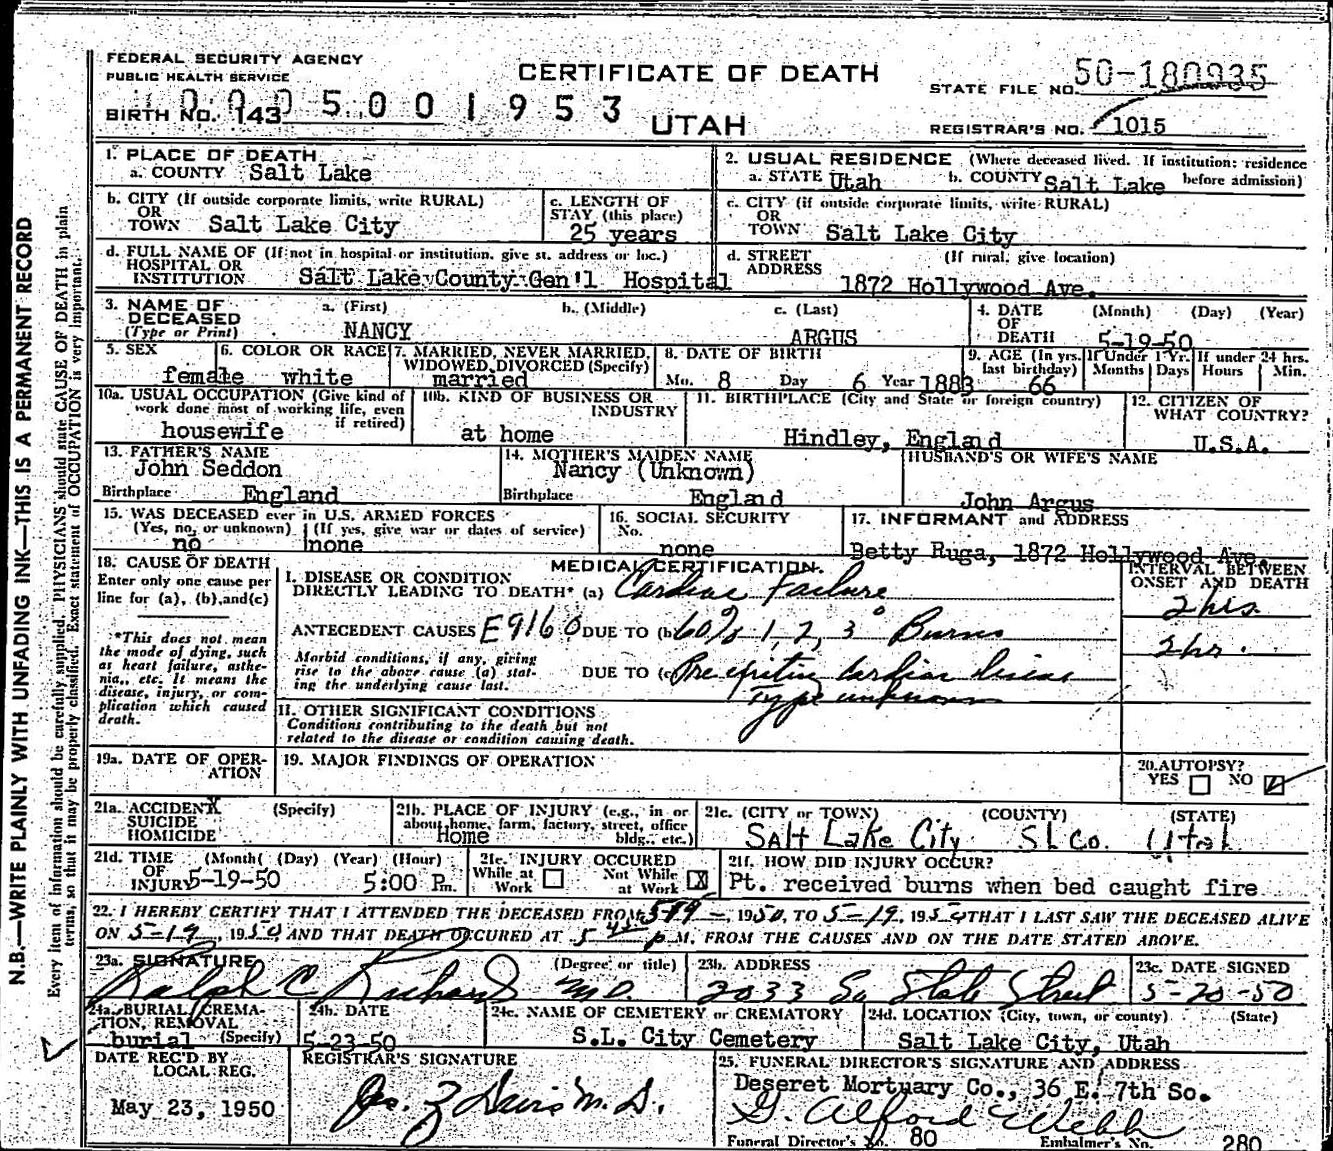 FEDERAL SECURITY AGENCY
PUBLIC HEALTH SERVICE
CERTIFICATE OF DEATH
STATE FILE NO. 50-180935
BIRTH NO. 143
0005001953
UTAH
REGISTRAR'S NO. 1015
1. PLACE OF DEATH
a. COUNTY Salt Lake
2. USUAL RESIDENCE (Where deceased lived. If institution: residence before admission)
a. STATE Utah b. COUNTY Salt Lake
b. CITY (If outside corporate limits, write RURAL) OR TOWN Salt Lake City
c. LENGTH OF STAY (this place) 25 years
c. CITY (if outside corporate limits, write RURAL) OR TOWN Salt Lake City
d. FULL NAME OF (If not in hospital or institution, give st. address or loc.) HOSPITAL OR INSTITUTION Salt Lake County Gen'l Hospital
d. STREET ADDRESS (If rural, give location) 1872 Hollywood Ave.
3. NAME OF DECEASED (Type or Print)
a. (First) NANCY b. (Middle) c. (Last) ARGUS
4. DATE OF DEATH (Month) (Day) (Year) 5-19-50
5. SEX female
6. COLOR OR RACE white
7. MARRIED, NEVER MARRIED, WIDOWED, DIVORCED (Specify) married
8. DATE OF BIRTH Mo. 8 Day 6 Year 1883
9. AGE (In yrs. last birthday) 66
If Under 1 Yr. Months Days
If under 24 hrs. Hours Min.
10a. USUAL OCCUPATION (Give kind of work done most of working life, even if retired) housewife
10b. KIND OF BUSINESS OR INDUSTRY at home
11. BIRTHPLACE (City and State or foreign country) Hindley, England
12. CITIZEN OF WHAT COUNTRY? U.S.A.
13. FATHER'S NAME John Seddon
Birthplace England
14. MOTHER'S MAIDEN NAME Nancy (Unknown)
Birthplace England
HUSBAND'S OR WIFE'S NAME John Argus
15. WAS DECEASED ever in U.S. ARMED FORCES
(Yes, no, or unknown) no
(If yes, give war or dates of service) none
16. SOCIAL SECURITY No. none
17. INFORMANT and ADDRESS
Betty Ruga, 1872 Hollywood Ave.
18. CAUSE OF DEATH
Enter only one cause per line for (a), (b), and (c)
*This does not mean the mode of dying, such as heart failure, asthenia, etc. It means the disease, injury, or complication which caused death.
MEDICAL CERTIFICATION
INTERVAL BETWEEN ONSET AND DEATH
I. DISEASE OR CONDITION DIRECTLY LEADING TO DEATH* (a) Cardiac Failure 2 hrs
ANTECEDENT CAUSES E9160 DUE TO (b) 60% 1, 2, 3° Burns 2 hr.
Morbid conditions, if any, giving rise to the above cause (a) stating the underlying cause last.
DUE TO (c) cardiac disease
Type unknown
II. OTHER SIGNIFICANT CONDITIONS
Conditions contributing to the death but not related to the disease or condition causing death.
19a. DATE OF OPERATION
19. MAJOR FINDINGS OF OPERATION
20. AUTOPSY? YES NO
21a. ACCIDENT X (Specify)
SUICIDE
HOMICIDE
21b. PLACE OF INJURY (e.g., in or about home, farm, factory, street, office bldg., etc.) Home
21c. (CITY or TOWN) (COUNTY) (STATE)
Salt Lake City SL Co. Utah
21d. TIME OF INJURY (Month) (Day) (Year) (Hour) 5-19-50 5:00 P m.
21e. INJURY OCCURED
While at Work Not While at Work X
21f. HOW DID INJURY OCCUR?
Pt. received burns when bed caught fire
22. I HEREBY CERTIFY THAT I ATTENDED THE DECEASED FROM 5-19, 1950, TO 5-19, 1950 THAT I LAST SAW THE DECEASED ALIVE
ON 5-19, 1950, AND THAT DEATH OCCURED AT 5 45 P M. FROM THE CAUSES AND ON THE DATE STATED ABOVE.
23a. SIGNATURE Ralph C. Richards (Degree or title) M.D.
23b. ADDRESS 2033 So State Street
23c. DATE SIGNED 5-20-50
24a. BURIAL, CREMATION, REMOVAL (Specify) burial
24b. DATE 5-23-50
24c. NAME OF CEMETERY or CREMATORY S.L. City Cemetery
24d. LOCATION (City, town, or county) (State) Salt Lake City, Utah
DATE REC'D BY LOCAL REG. May 23, 1950
REGISTRAR'S SIGNATURE
25. FUNERAL DIRECTOR'S SIGNATURE AND ADDRESS
Deseret Mortuary Co., 36 E. 7th So.
G. Alford Webb
Funeral Director's No. 80 Embalmer's No. 280
N.B.—WRITE PLAINLY WITH UNFADING INK—THIS IS A PERMANENT RECORD
Every item of information should be carefully supplied. PHYSICIANS should state CAUSE OF DEATH in plain terms, so that it may be properly classified. Exact statement of OCCUPATION is very important.